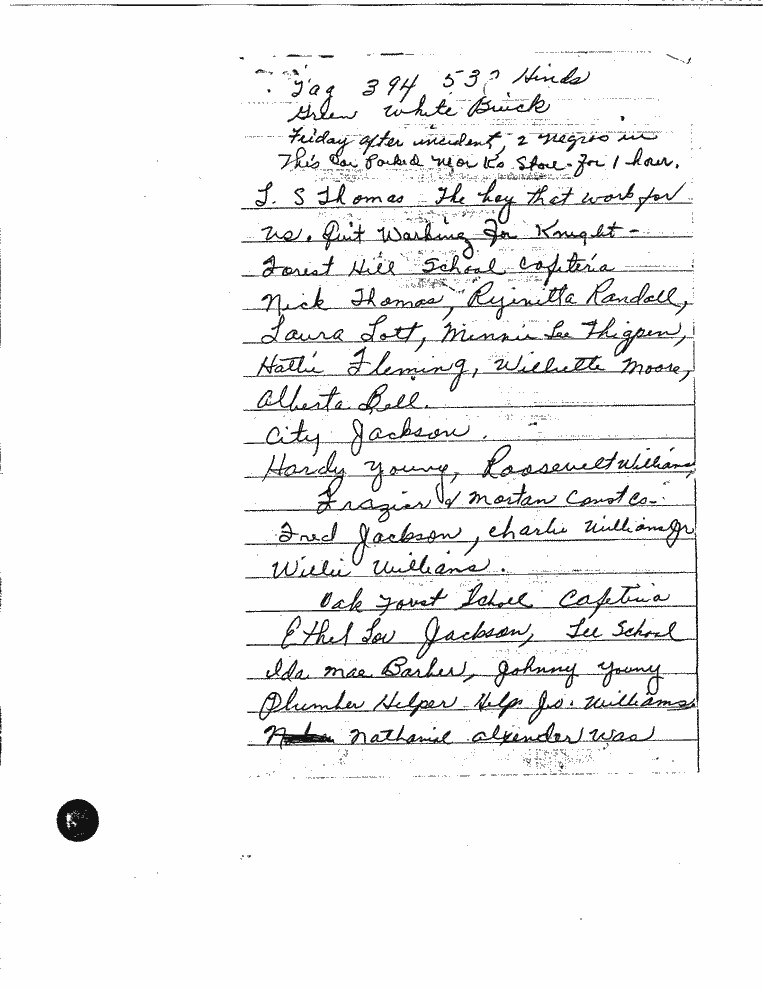 Tag 394 53? Hinds
Green White Buick
Friday after incident, 2 negros in
This Car Parked near K's Store - for 1 hour.
T. S Thomas The boy that work for
us. Quit Working For Knught -
Forest Hill School Cafeteria
Nick Thomas, Randall,
Laura Lott, Minnie Lee Thigpen,
Hattie Fleming, Willette Moore,
Alberta Bell.
City Jackson.
Hardy Young, Roosevelt Williams,
Frazier & Mortan Const Co -
Fred Jackson, Charlie Williams Jr
Willie Williams.
Oak Forest School Cafeteria
Ethel Lov Jackson, Lee School
Ida mae Barber, Johnny Young
Plumber Helper Helps Jno. Williams
Nathaniel was